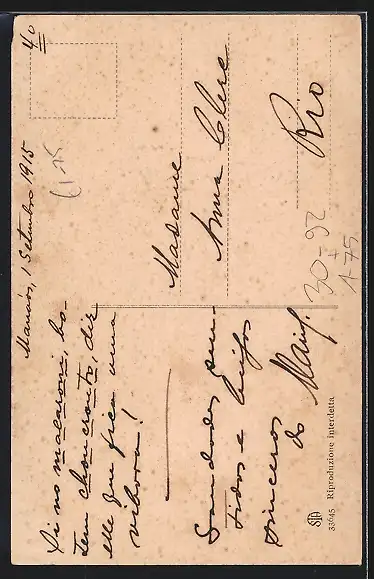 40
Manáos, 1 Setembro 1915
Si no macaroni, bo-
tem chouconto, diz
elle que fica uma
vibora!
Saudades sen-
tidos e beijos
sinceros
do Mário.
Madame
Anna Clere
Rio
30-92
+
1-75
6175
33645 Riproduzione interdetta